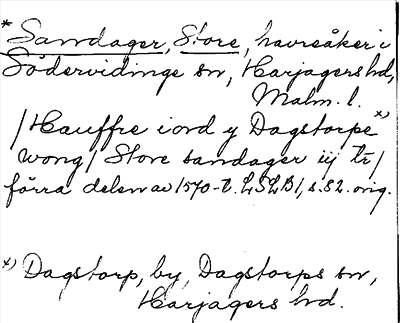 * Sandager, Store, havreåker i
Södervidinge sn, Harjagers hd,
Malm. l.
/Hauffre iord y Dagstorpe x)
wong/ Store sandager iij tr/
förra delen av 1570-t. LSLB1, s. 82. orig.
x) Dagstorp, by, Dagstorps sn,
Harjagers hd.